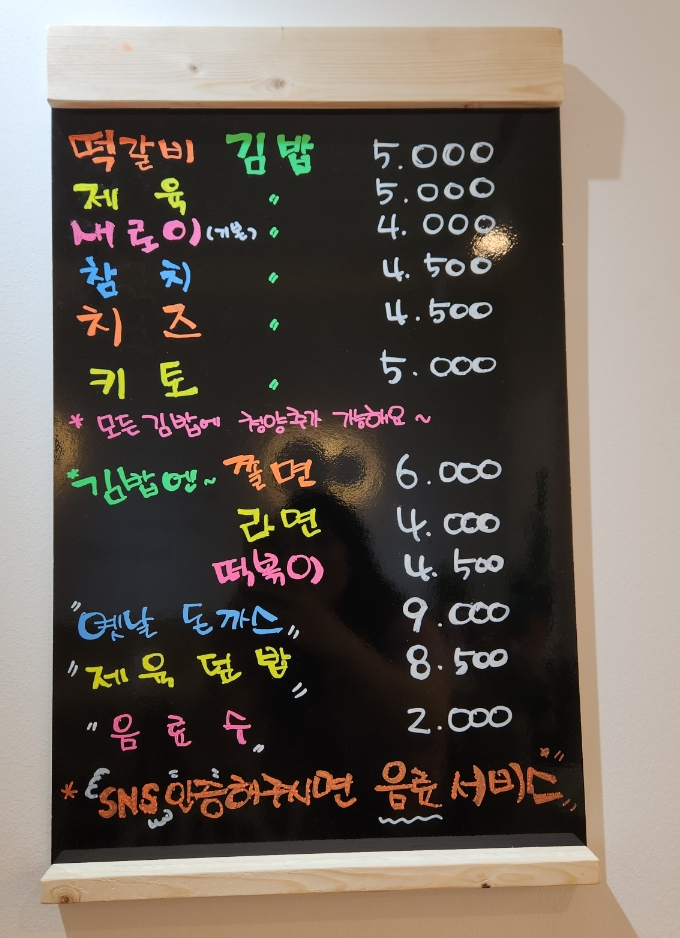 떡갈비 김밥 5.000
제육 〃 5.000
새로이(기본) 〃 4.000
참치 〃 4.500
치즈 〃 4.500
키토 〃 5.000
* 모든김밥에 청양추가 가능해요~
*김밥엔~ 쫄면 6.000
라면 4.000
떡볶이 4.500
"옛날 돈까스" 9.000
"제육덮밥" 8.500
"음료수" 2.000
* SNS인증해주시면 음료서비스